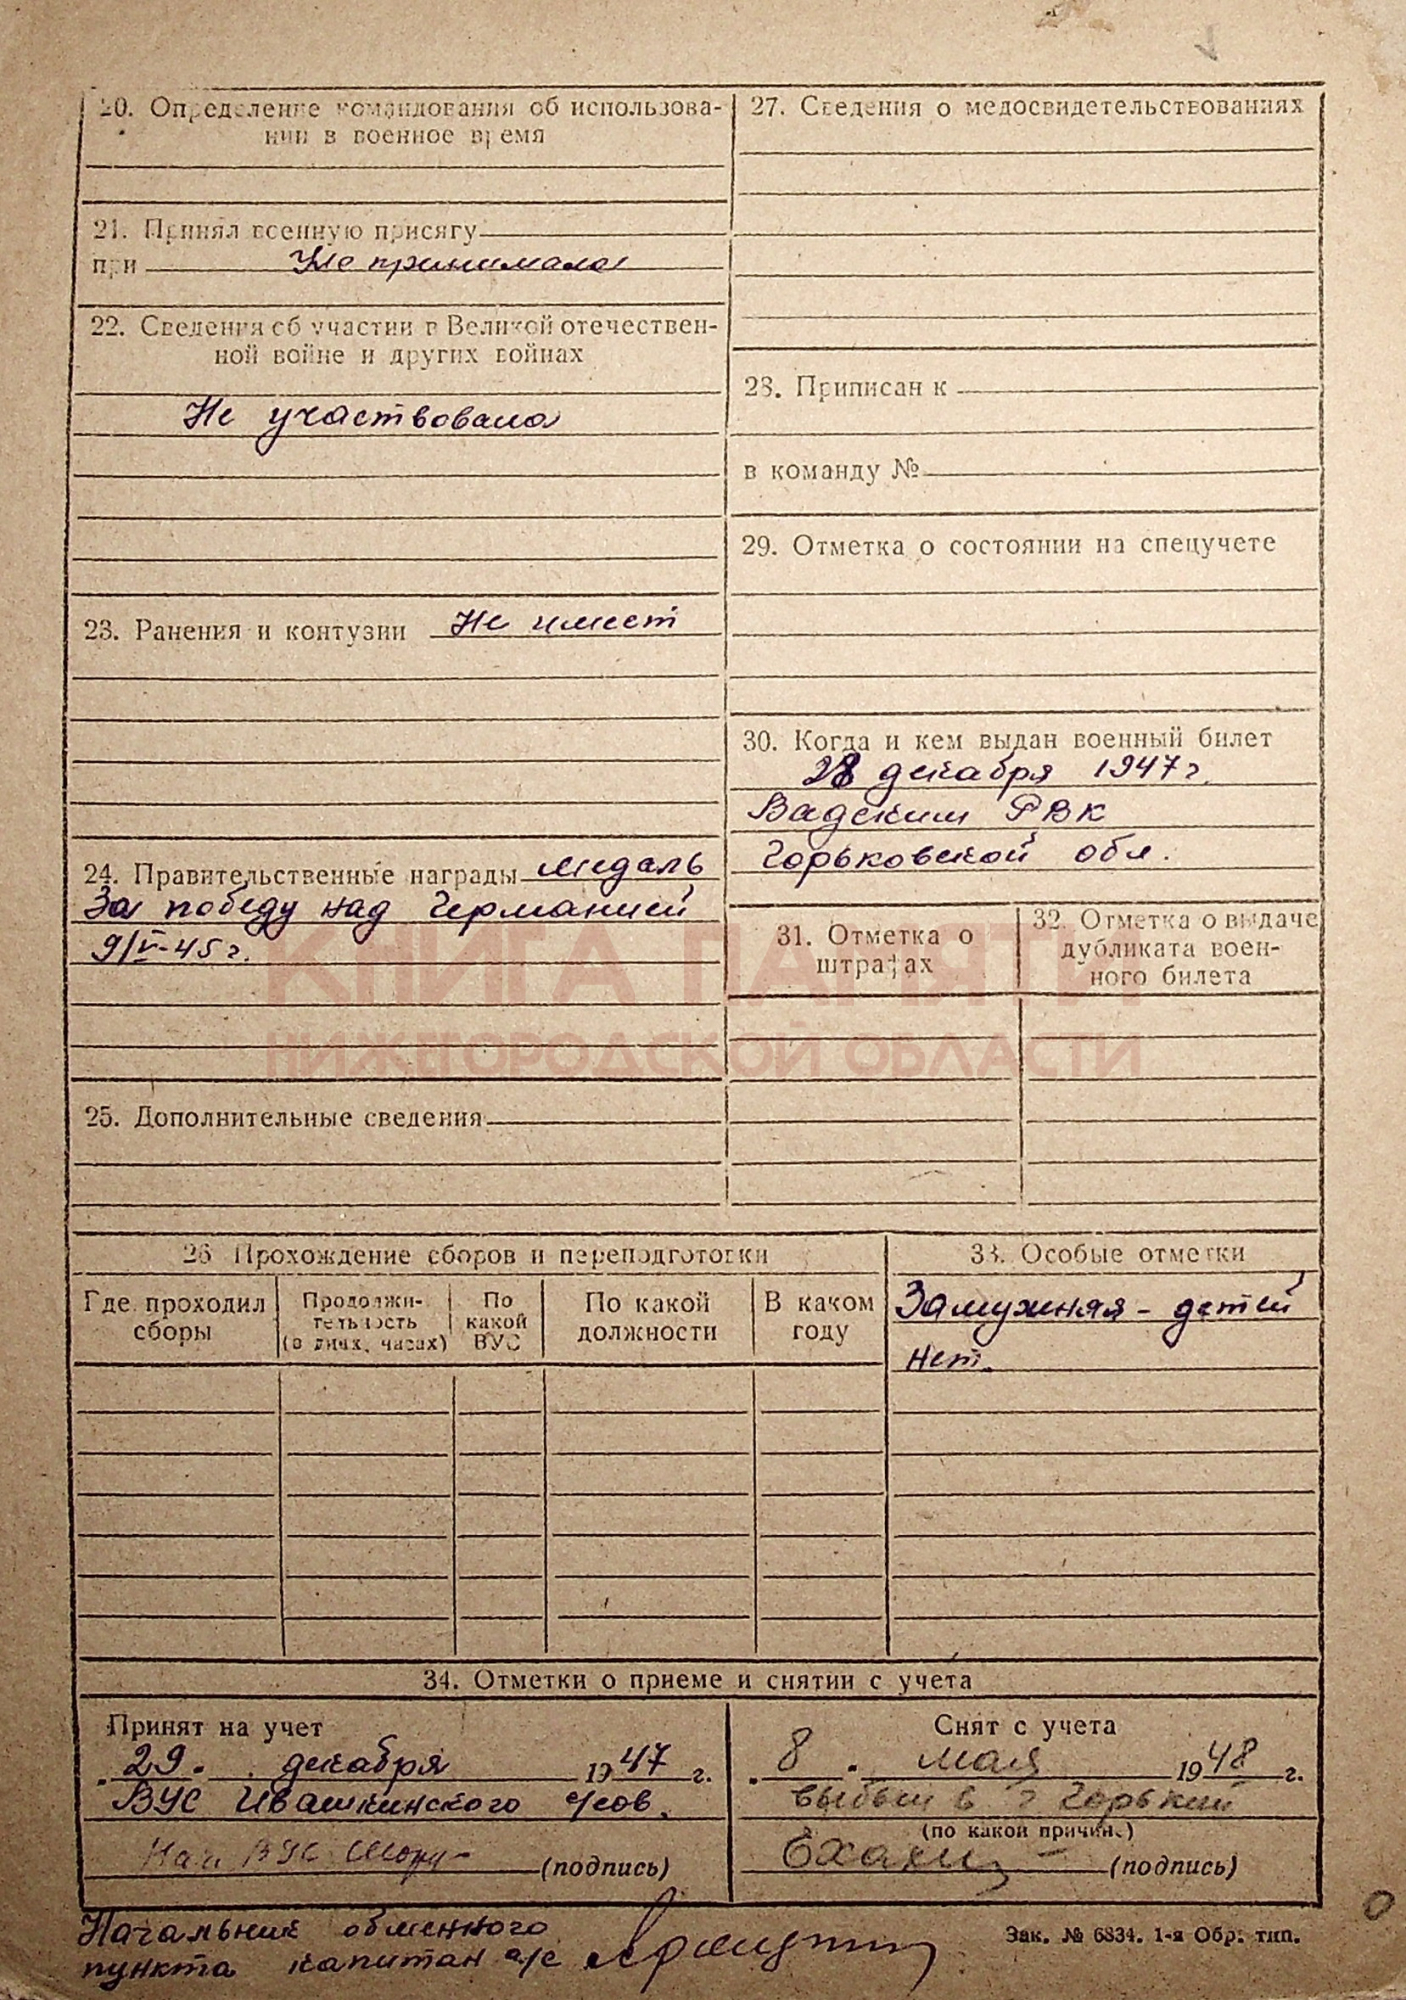 20. Определение командования об использова-
нии в военное время
21. Принял военную присягу
при Не принимала
22. Сведения об участии в Великой отечествен-
ной войне и других войнах
Не участвовала
23. Ранения и контузии Не имеет
24. Правительственные награды медаль
За победу над Германией
9/V-45 г.
25. Дополнительные сведения
27. Сведения о медосвидетельствованиях
28. Приписан к
в команду №
29. Отметка о состоянии на спецучете
30. Когда и кем выдан военный билет
28 декабря 1947 г.
Вадским РВК
Горьковской обл.
31. Отметка о
штрафах
32. Отметка о выдаче
дубликата воен-
ного билета
КНИГА ПАМЯТИ
НИЖЕГОРОДСКОЙ ОБЛАСТИ
26 Прохождение сборов и переподготовки
Где проходил
сборы
Продолжи-
тельность
(в днях, часах)
По
какой
ВУС
По какой
должности
В каком
году
33. Особые отметки
Замужняя - детей
нет.
34. Отметки о приеме и снятии с учета
Принят на учет
29 декабря 1947 г.
ВУС Ивашкинского с/сов.
Нач ВУС (подпись)
Снят с учета
8 мая 1948 г.
выбыл в г Горький
(по какой причине)
(подпись)
Начальник обменного
пункта капитан а/с
Зак. № 6834. 1-я Обр. тип.